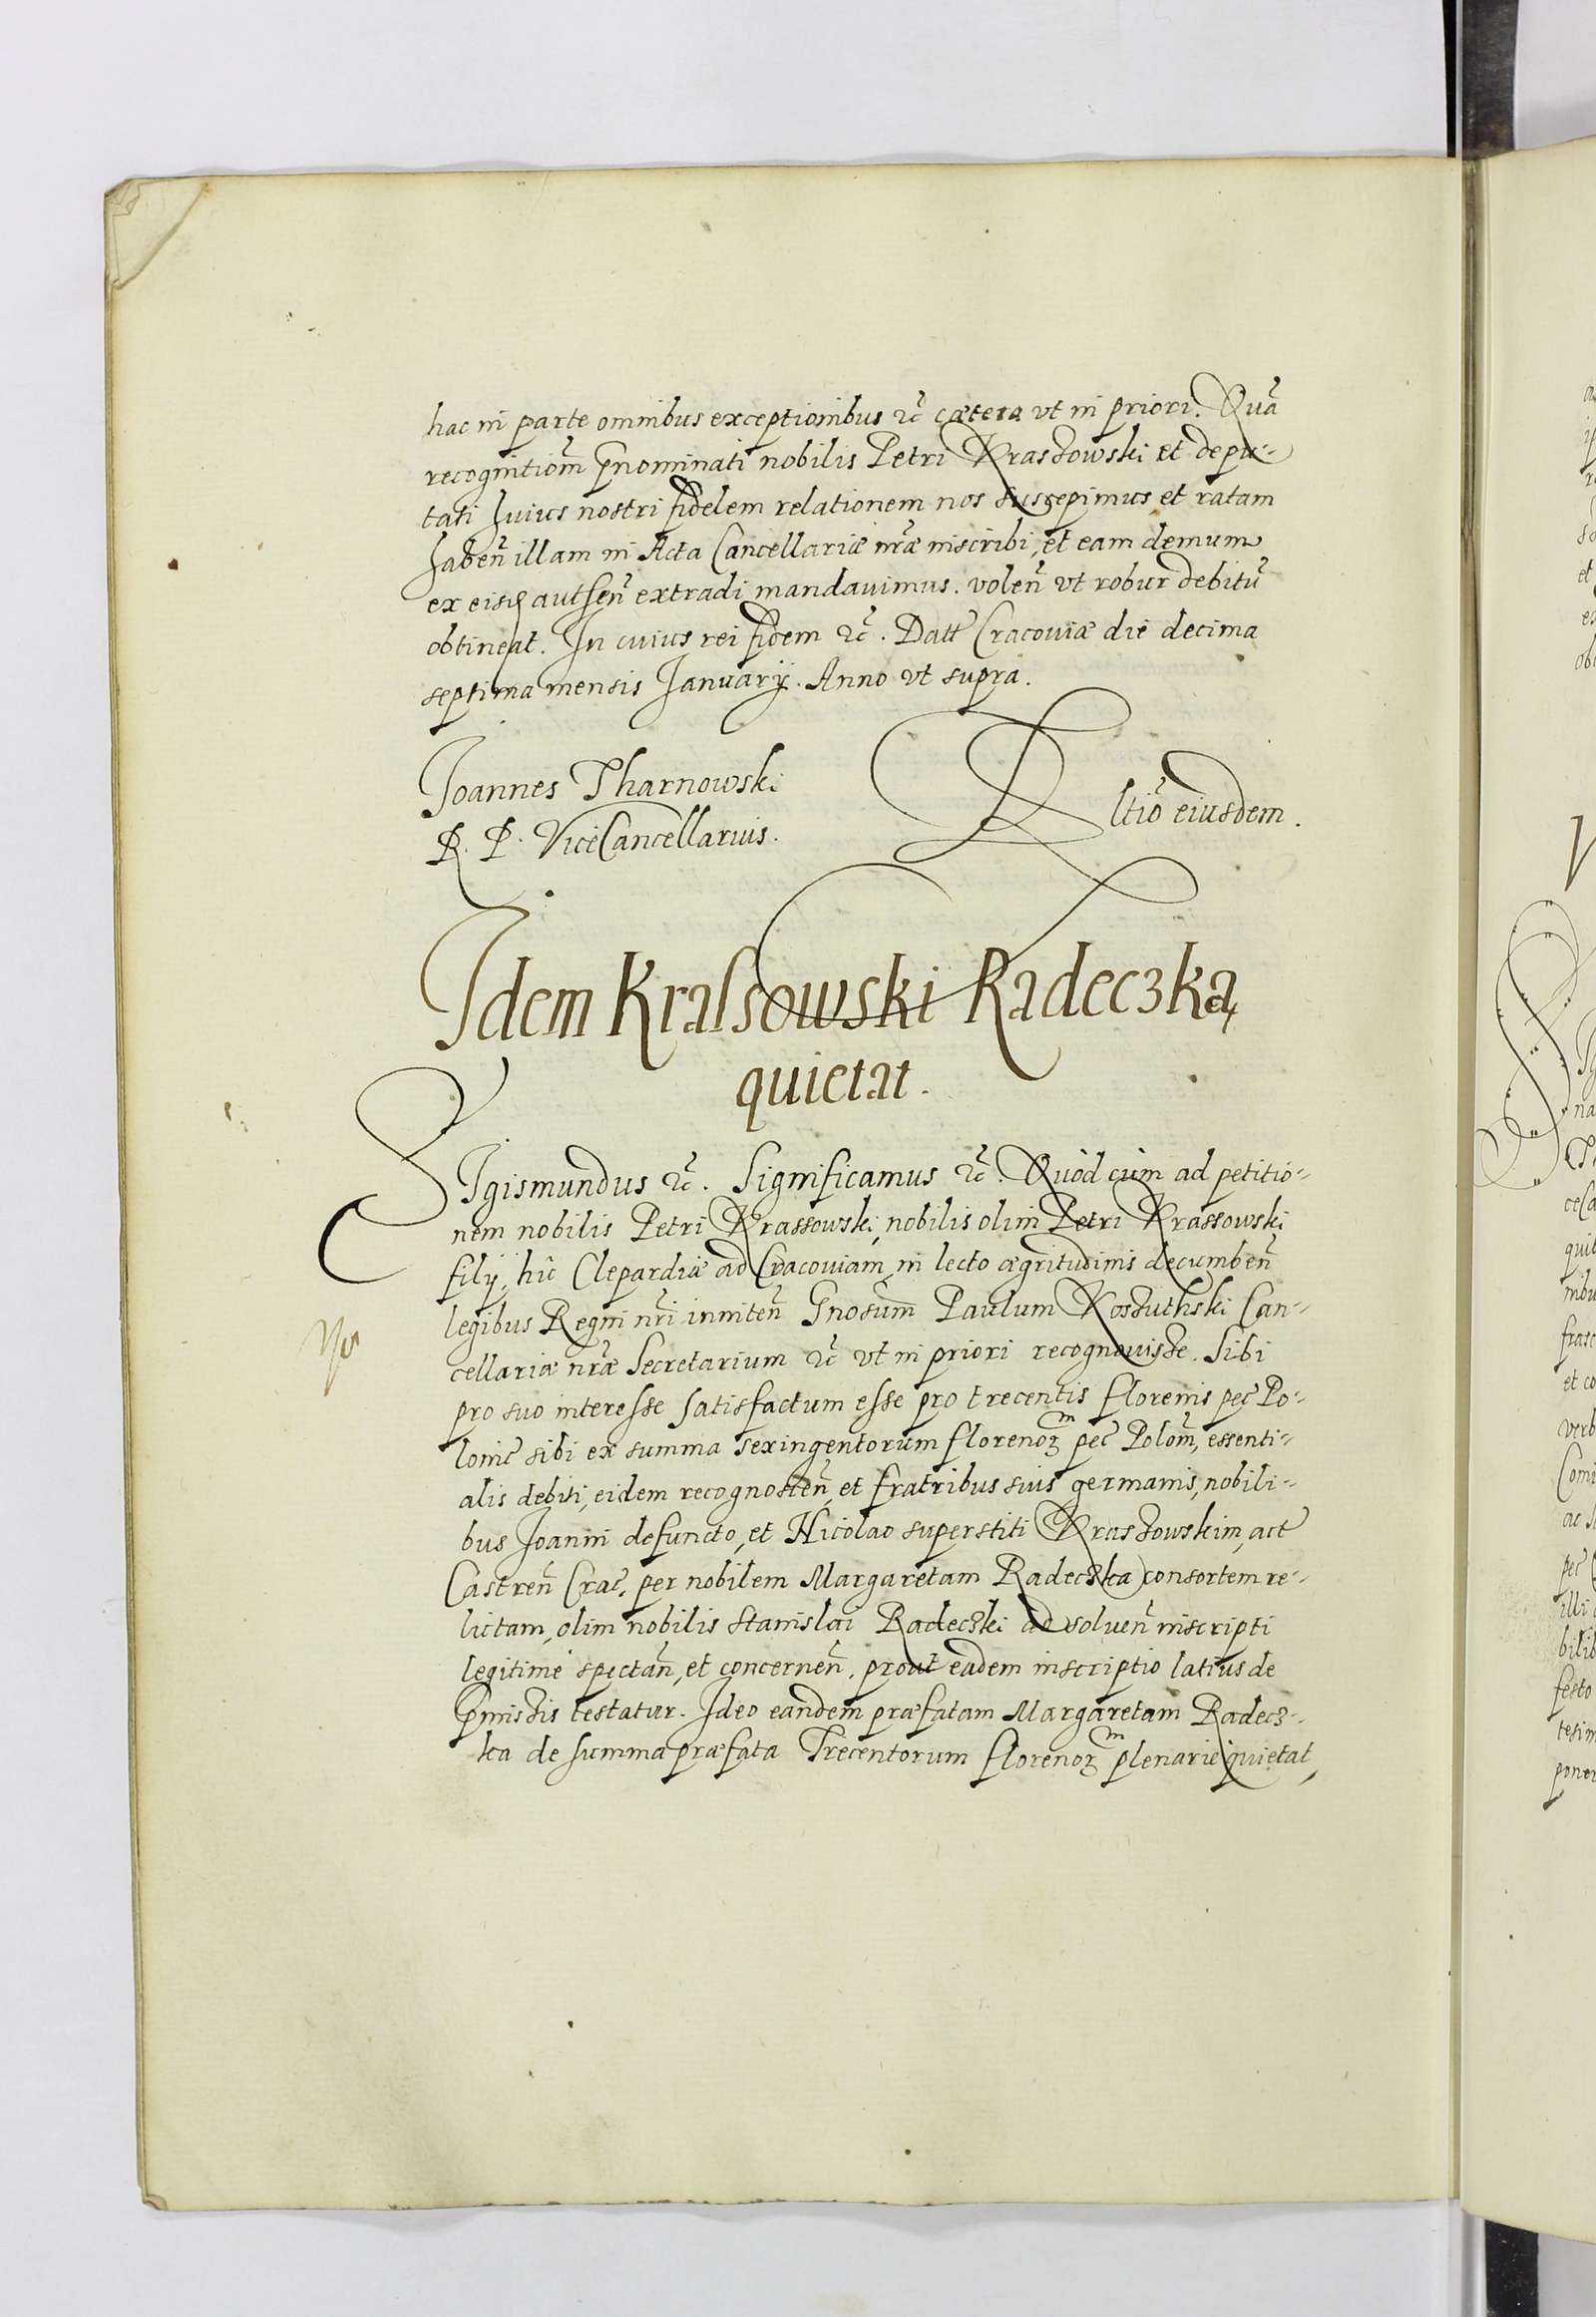 hac in parte omnibus exceptionibus &c̃ cætera vt in priori. Quã
recognitiom̃ p̃nominati nobilis Petri Krassowski et depu-
tati huius nostri fidelem relationem nos suscepimus et ratam
haben̄ illam in Acta Cancellariæ nr̃æ inscribi, et eam demum
ex eisd authen̄ extradi mandauimus. volen̄ vt robur debitũ
obtineat. In cuius rei fidem &c̃. Datt Cracouiæ die decima
septima mensis Ianuarij. Anno vt supra.
Ioannes Tharnowski
R. P. ViceCancellarius.
Rltio eiusdem.
Idem Krassowski Radeczką
quietat.
SIgismundus &c̃. Significamus &c̃. Quòd cùm ad petitio-
nem nobilis Petri Krassowski, nobilis olim Petri Krassowski
filij, hîc Clepardiæ ad Cracouiam, in lecto ægritudinis decumben̄
legibus Regni nr̃i inniten̄ Gnosum̃ Paulum Kossuthski Can-
cellariæ nr̃æ Secretarium &c̃ vt in priori recognouisse. Sibi
pro suo interesse satisfactum esse pro trecentis florenis pec̃ Po-
lonic̃ sibi ex summa sexingentorum florenoꝝ m pec̃ Polom̃, essenti-
alis debiti, eidem recognoscen̄, et fratribus suis germanis, nobili-
bus Joanni defuncto, et Nicolao superstiti Krassowskim, act
Castren̄ Crac̃, per nobilem Margaretam Radeczka consortem re-
lictam, olim nobilis Stanislai Radeczki ad soluen̄ inscripti
legitimè spectan̄, et concernen̄, prout eadem inscriptio latius de
p̃missis testatur. Ideo eandem præfatam Margaretam Radecz-
ka de summa præfata Trecentorum florenoꝝ m plenariè quietat,